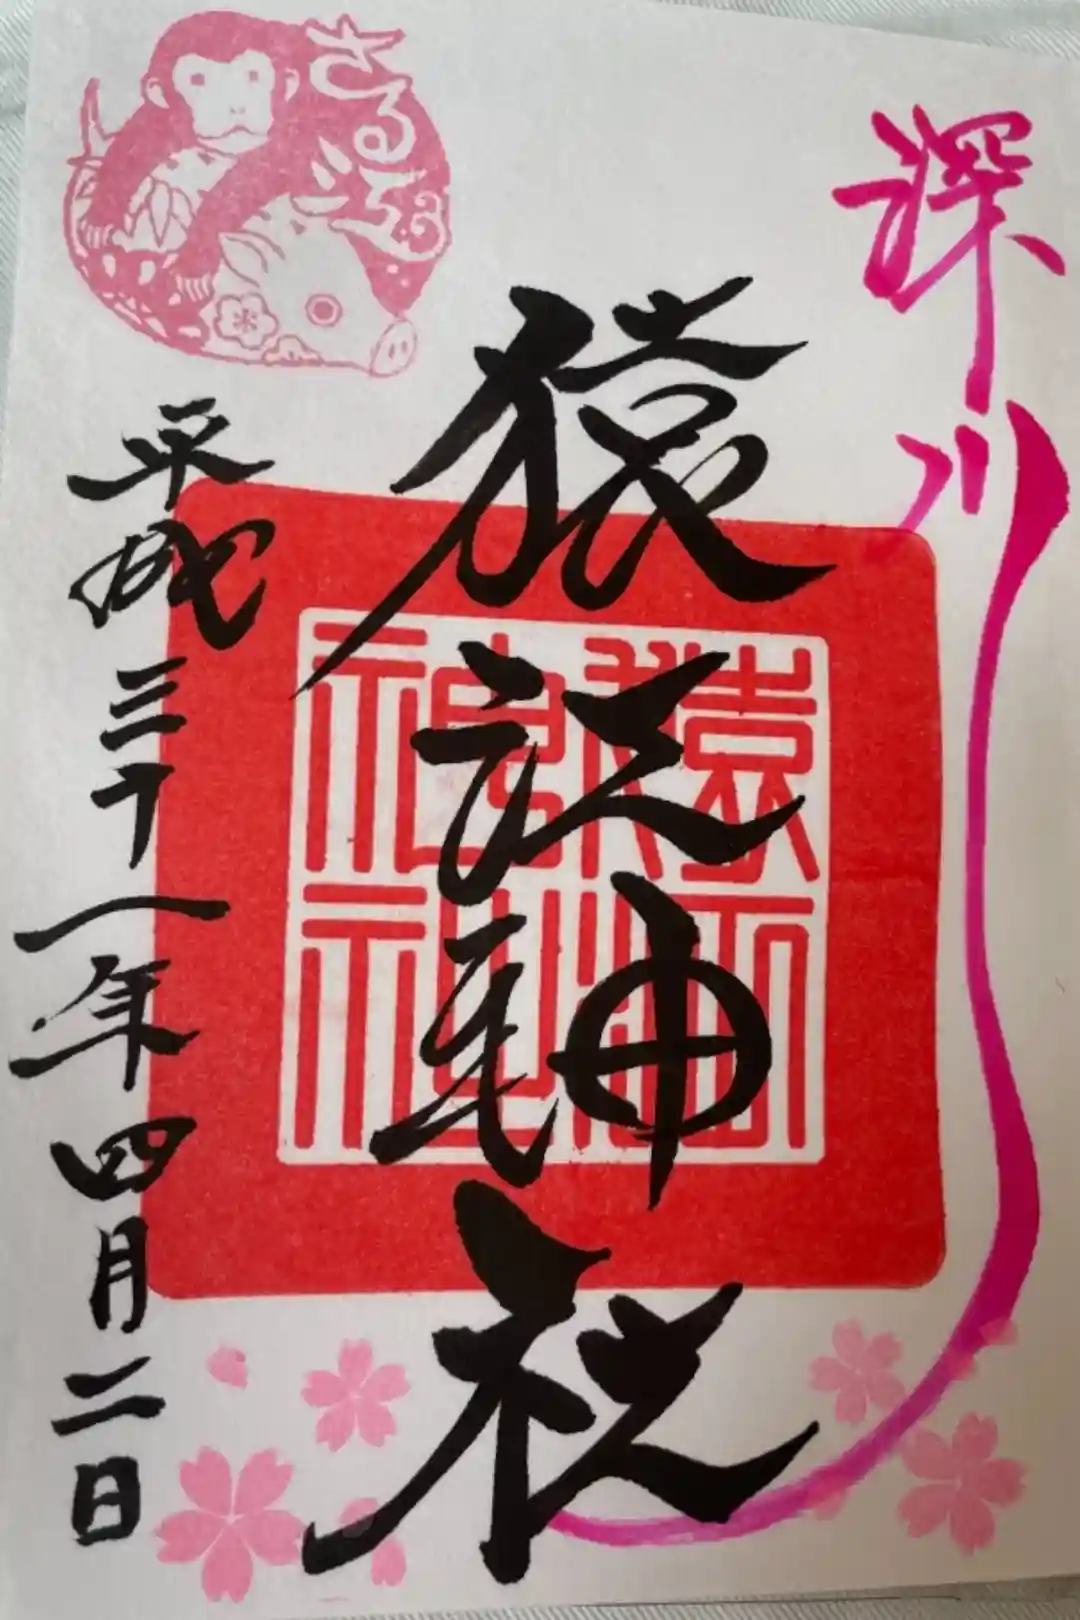 深川
猿江神社
猿江神社
平成三十一年四月二日
さる江